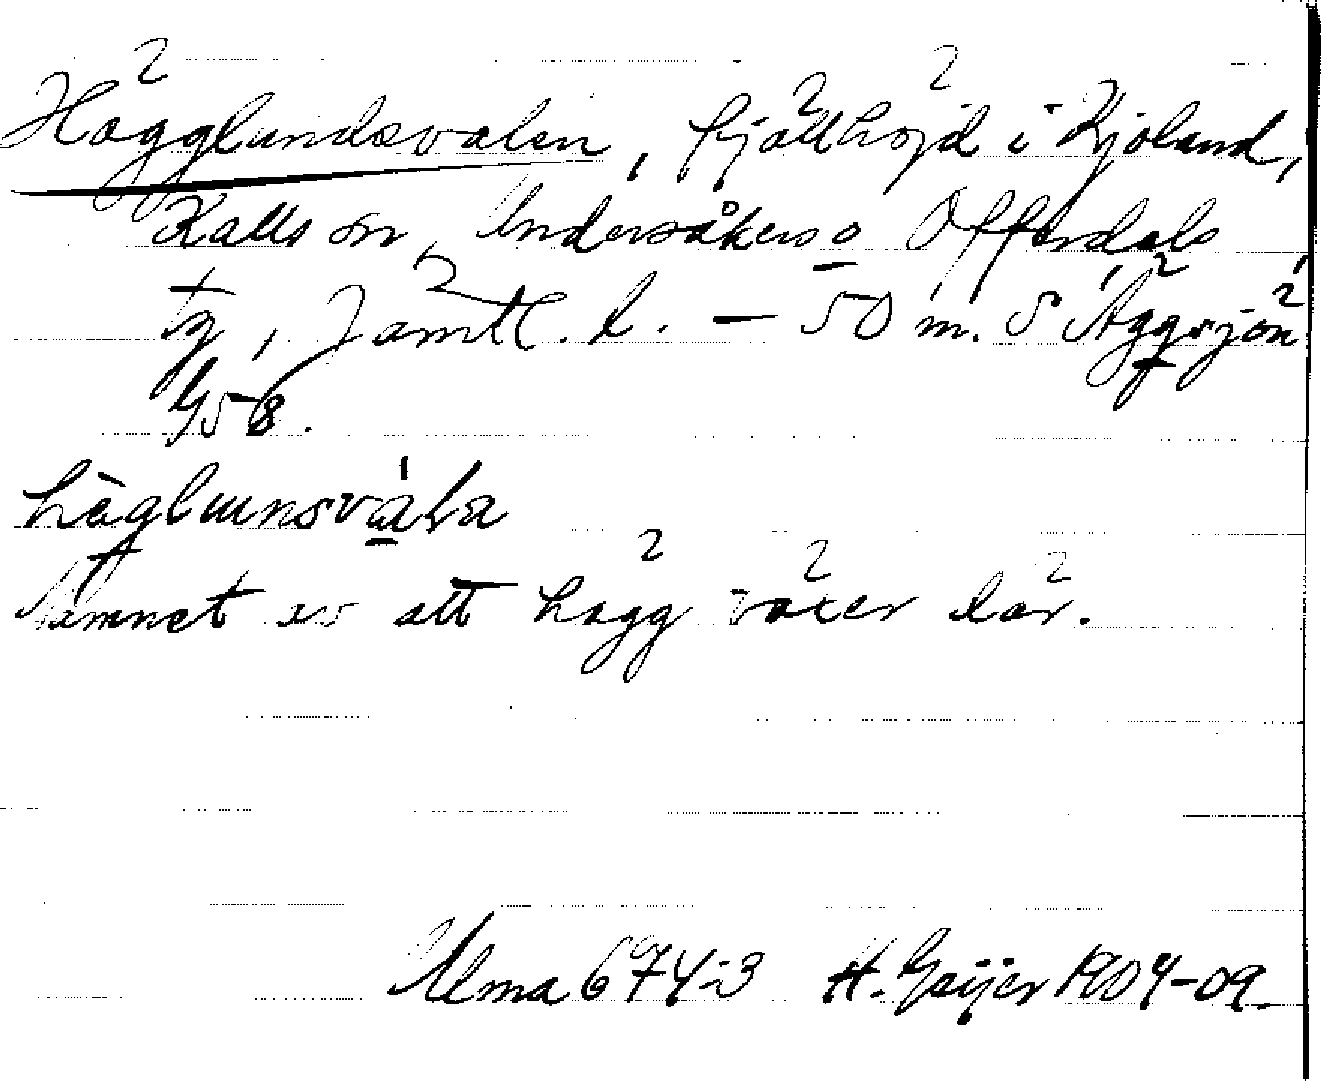 Hägglundsvalen, fjällhöjd i Kjoland,
Kalls sn, Undersåkers o Offerdals
tg, Jämtl. l. — 50 m. S Äggsjön
G58.
hàglunsvála
Namnet av att hägg växer där.
Ulma 674:3 H. Geijer 1904-09.